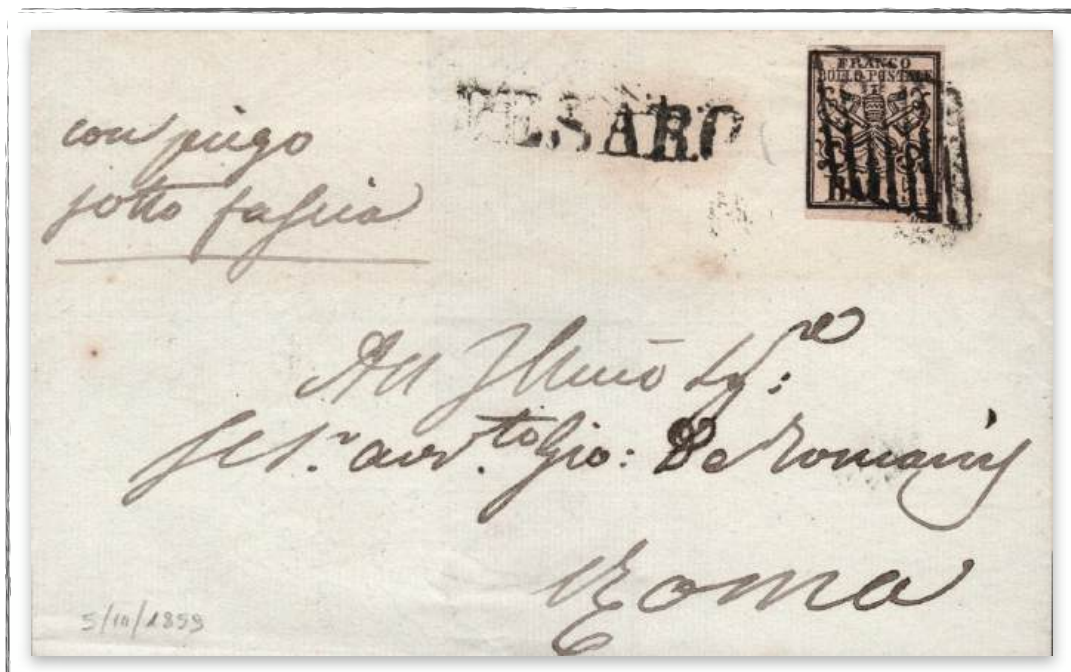 con piego
sotto fascia
PESARO
FRANCO
BOLLO POSTALE
All Illmo Sig:re
Gio: De Romanis
Roma
5/10/1859